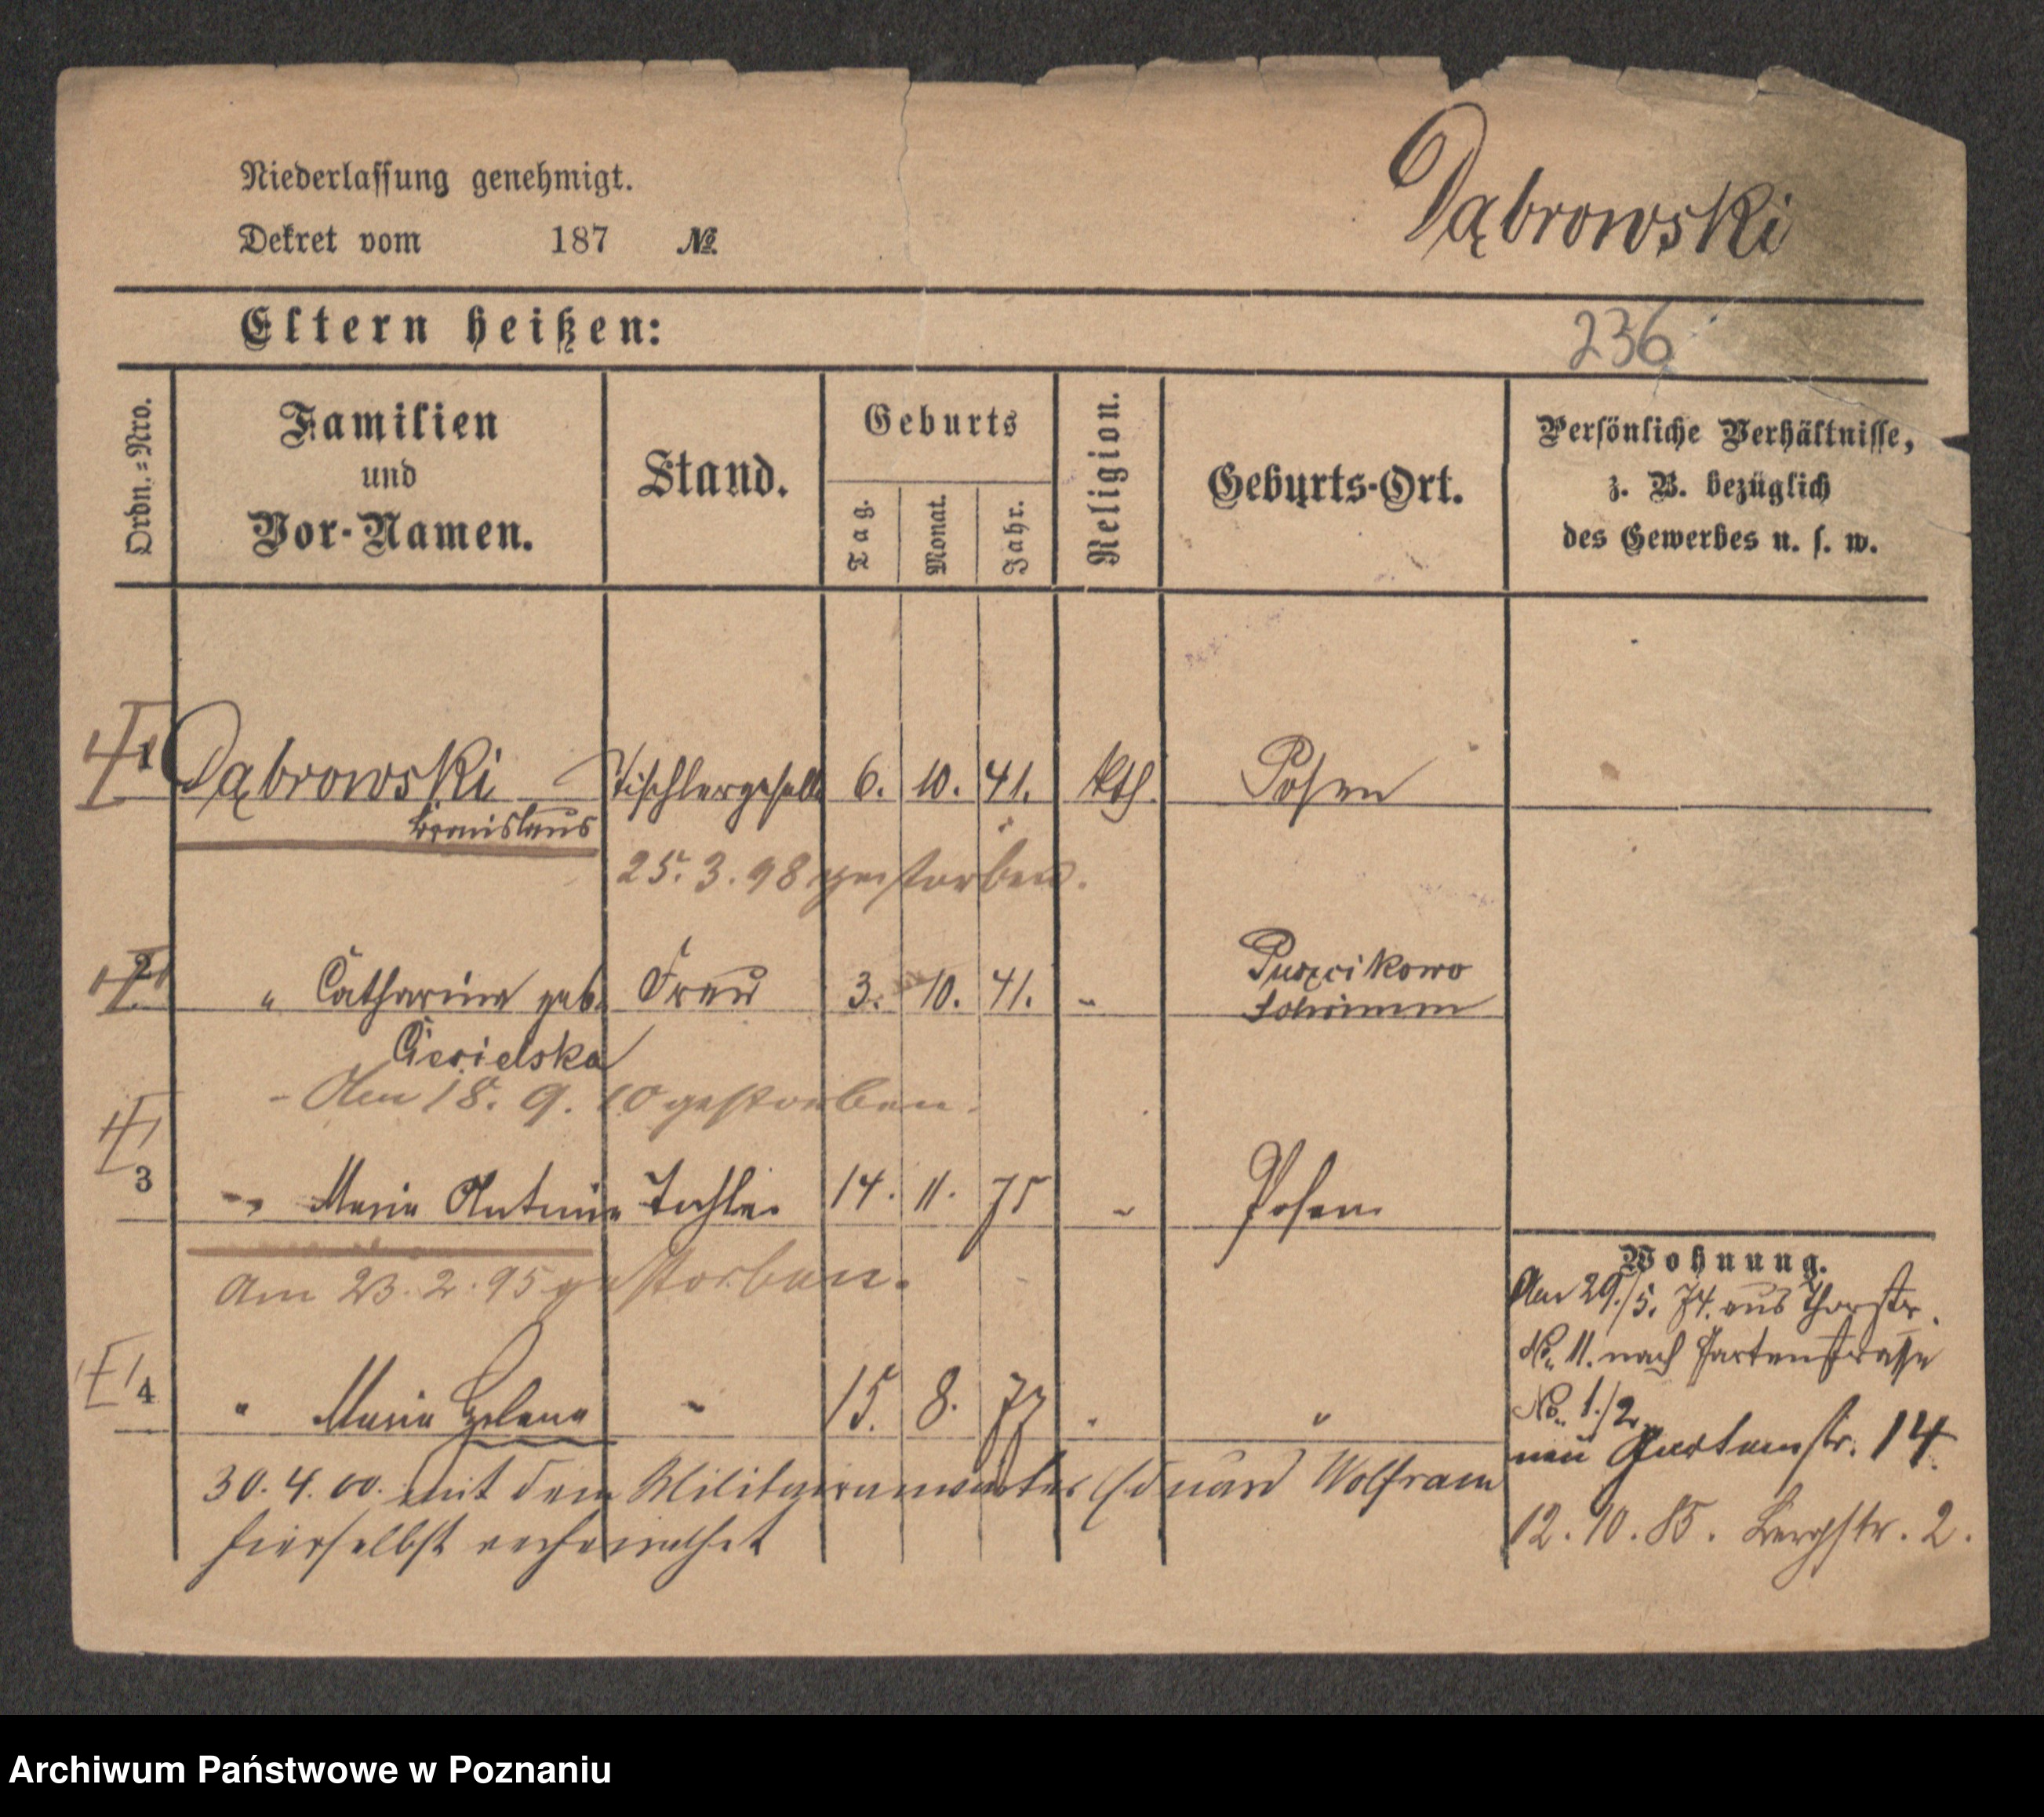 Niederlassung genehmigt.
Dekret vom 187 №
Dąbrowski
Eltern heißen:
236
Ordn.=Nro.
Familien
und
Vor-Namen.
Stand.
Geburts
Tag.
Monat.
Jahr.
Religion.
Geburts-Ort.
Persönliche Verhältnisse,
z. B. bezüglich
des Gewerbes u. s. w.
1 Dąbrowski Tischlergeselle 6. 10. 41. kth. Posen
Bronislaus
25. 3. 98 gestorben.
2 " Catharina geb. Frau 3. 10. 41. " Puszcikowo
Schrimm
Ciesielska
- Am 18. 9. 10 gestorben.
3 " Maria Antonie Tochter 14. 11. 75 " Posen
Am 23. 2. 95 gestorben.
4 " Maria Helena " 15. 8. 77 " "
30. 4. 00. mit dem Militairanwärter Eduard Wolfram
hierselbst verheirathet
Wohnung.
Am 29./5. 74. aus Thorstr.
No. 11. nach Gartenstrasse
No. 1./2.
neu Gartenstr. 14.
12. 10. 85. Bergstr. 2.
Archiwum Państwowe w Poznaniu